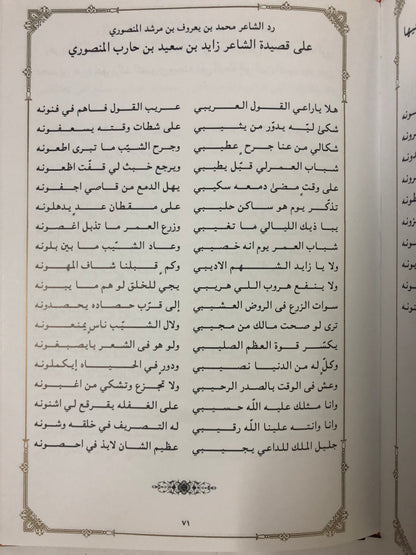 رد الشاعر محمد بن يعروف بن مرشد المنصوري
على قصيدة الشاعر زايد بن سعيد بن حارب المنصوري
هلا ياراعي القول العريبي عريب القول فاهم في فنونه
شكى لبّه يدوّر من يثيبي على شطات وقته يسعفونه
شكالي من عنا جرح عطيبي وجرح الشيّب ما تبرى اطعونه
شباب العمر لي قبل يطيبي ويرجع خبث لي قفّت اظعونه
على وقت مضى دمعه سكيبي يهل الدمع من قاصي اجفونه
تذكّر يوم هو ساكن حليبي على مقطان عد يدهلونه
يبا ذيك الليالي ما تغيبي وزرع العمر ما تذبل اغصونه
شباب العمر يوم انه خصيبي وعاد الشيّب ما بين بلونه
ولا يا زايد الشهم الاديبي وكم قبلنا شاف المهونه
ولا ينفع هروب اللي هريبي يجي للخلق لو هم ما يبونه
سوات الزرع في الروض العشيبي إلى قرّب حصاده يحصدونه
ترى لو صحت مالك من مجيبي ولال الشيّب ناس يمنعونه
يكسّر قوة العظم الصليبي ولو هو في الشعر بايصبغونه
وكلّ له من الدنيا نصيبي ودور في الحياه إيكملونه
وعش في الوقت بالصدر الرحيبي ولا تجزع وتشكي من اغبونه
وانا مثلك عليه اللّه حسيبي على الغفله يقرقع لي اشنونه
وانا وانته علينا اللّه رقيبي له التصريف في خلقه وشونه
جليل الملك للداعي يجيبي عظيم الشان لايذ في احصونه
٧١